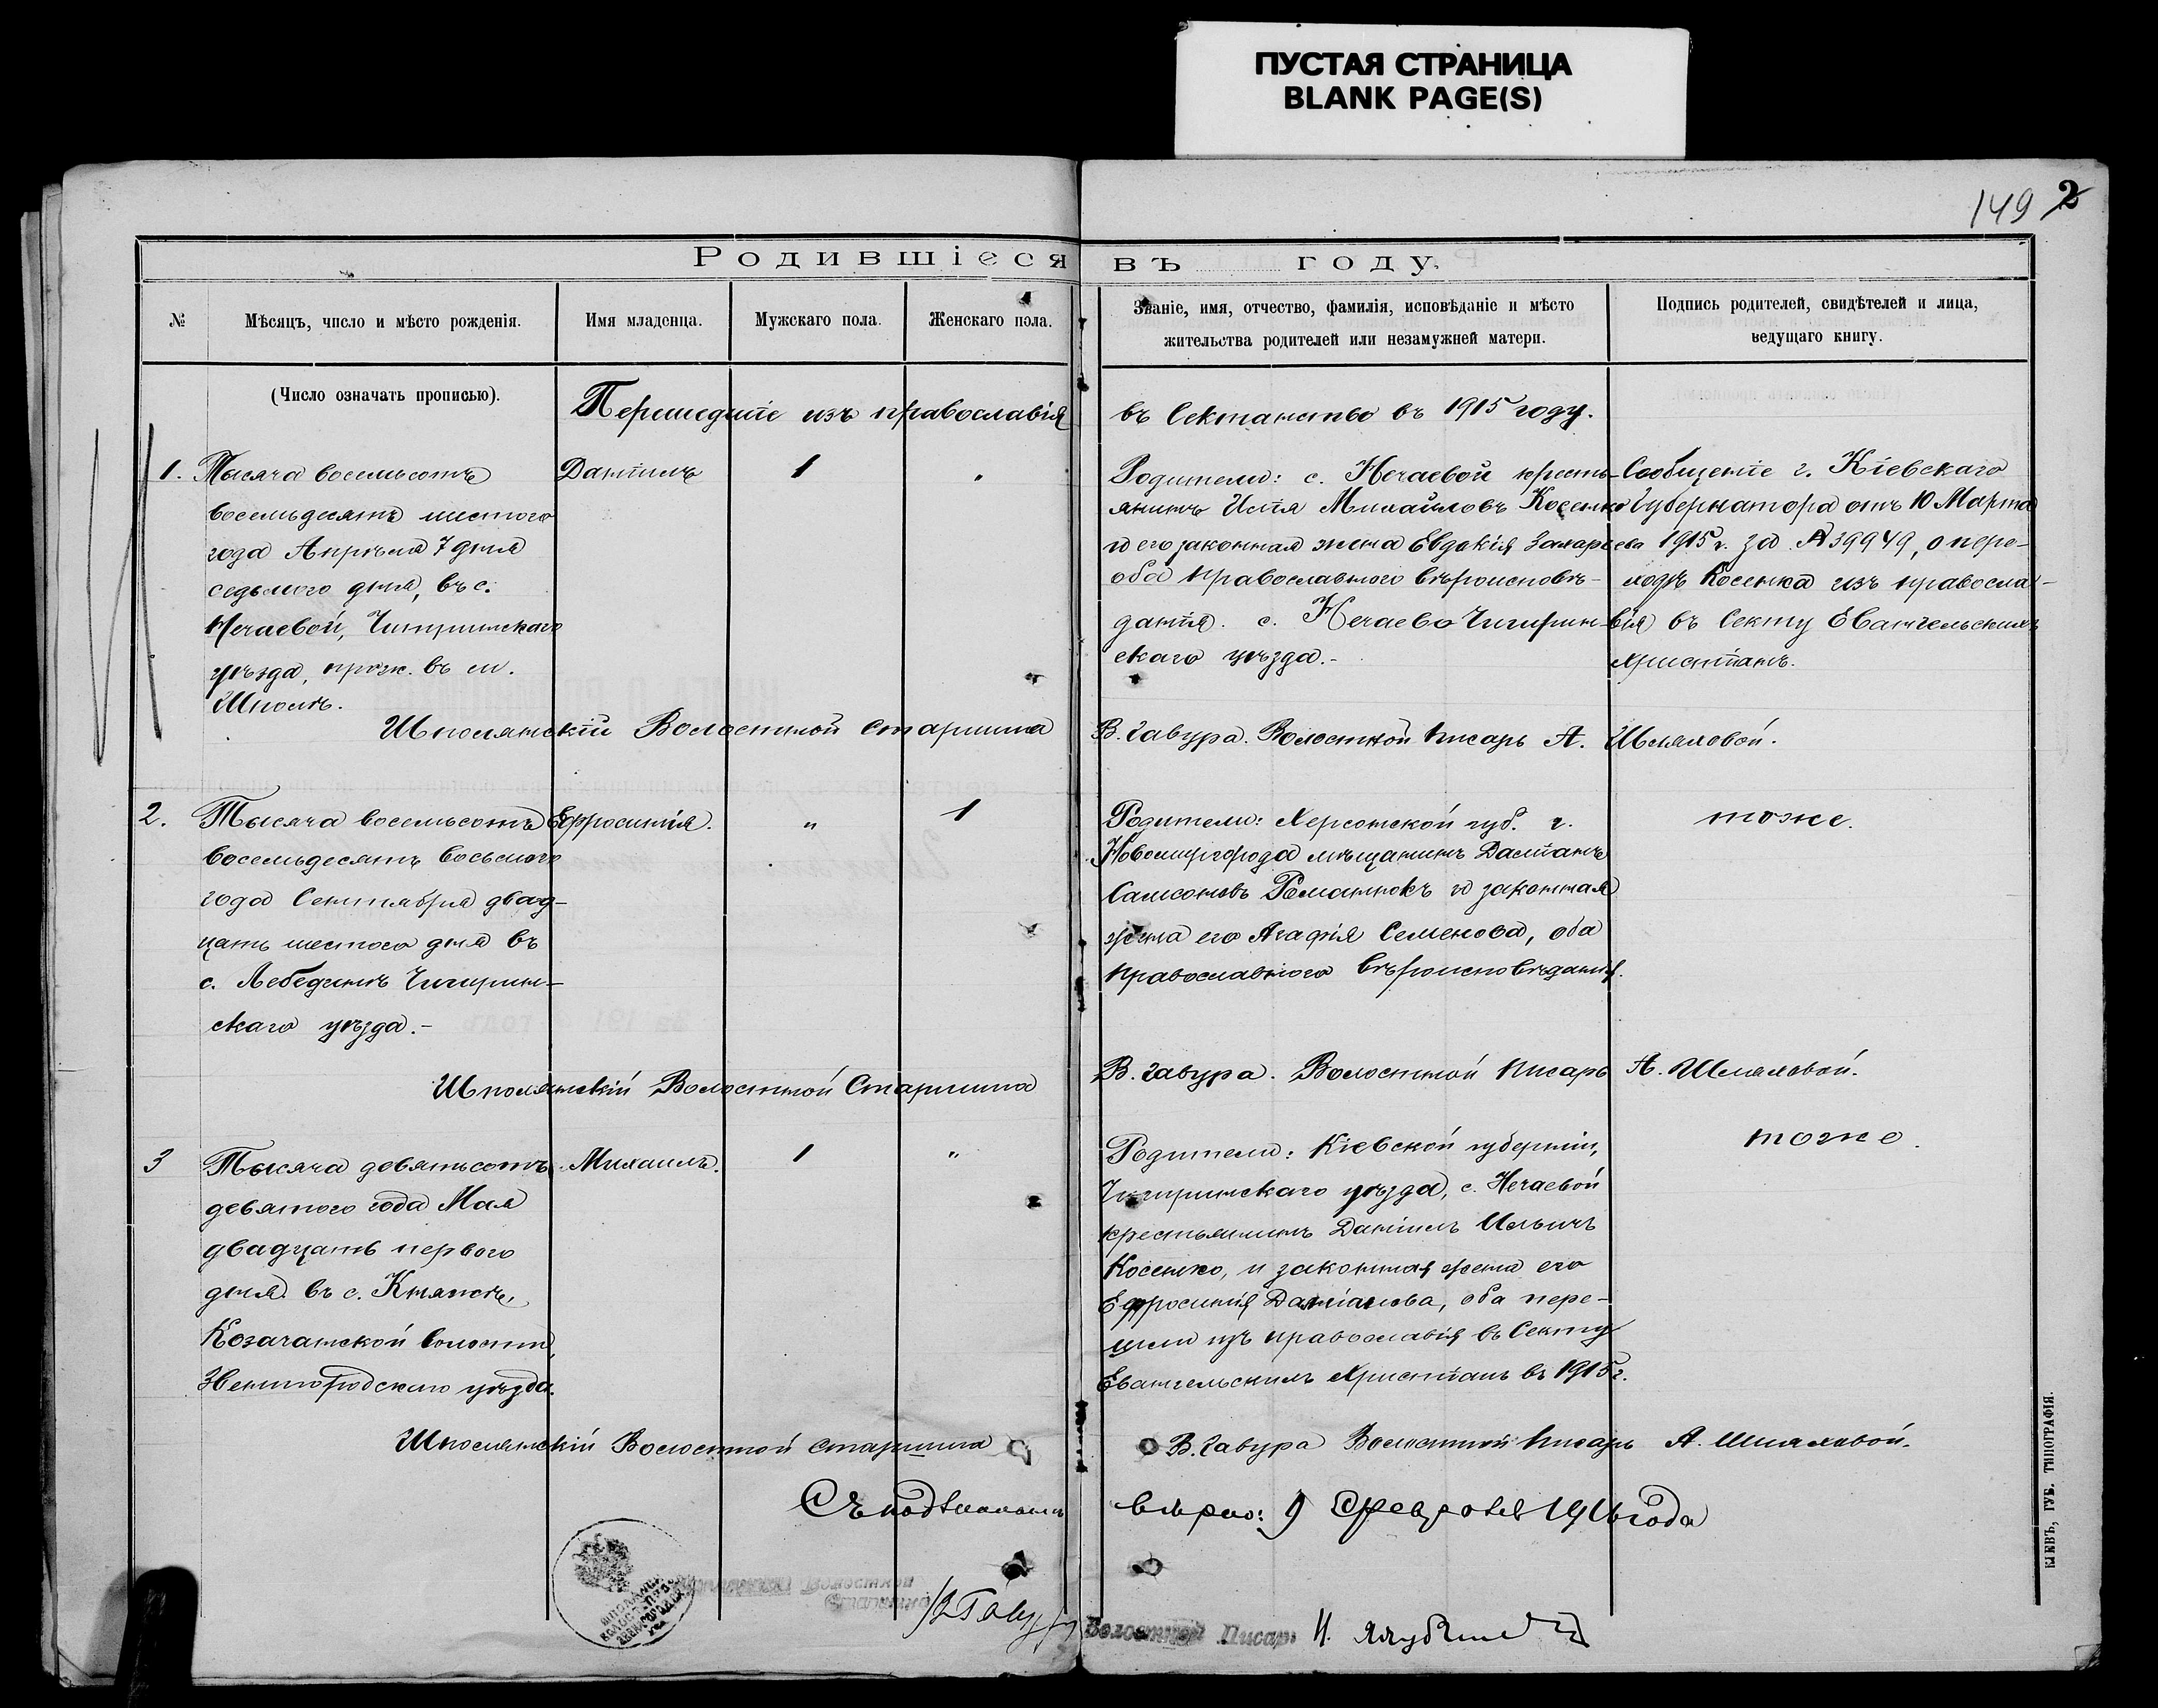 ПУСТАЯ СТРАНИЦА
BLANK PAGE(S)
149 2
Родившіеся въ году.
№
Мѣсяцъ, число и мѣсто рожденія.
Имя младенца.
Мужскаго пола.
Женскаго пола.
Званіе, имя, отчество, фамилія, исповѣданіе и мѣсто
жительства родителей или незамужней матери.
Подпись родителей, свидѣтелей и лица,
ведущаго книгу.
(Число означать прописью).
Перешедшіе изъ православія въ Сектанство въ 1915 году.
1.
Тысяча восемьсотъ
восемьдесятъ шестого
года Апрѣля 7 дня
седьмого дня, въ с.
Нечаевой, Чигиринскаго
уѣзда, прож. въ м.
Шполѣ.
Даніилъ
1
"
Родители: с. Нечаевой кресть-
янинъ Илія Михайловъ Косенко
и его законная жена Евдокія Захарьева
оба православного вѣроисповѣ-
данія. с. Нечаево Чигирин-
скаго уѣзда.-
Сообщеніе г. Кіевскаго
Губернатора отъ 10 Марта
1915 г. за № 39949, о пере-
ходѣ Косенка изъ правосла-
вія въ Секту Евангельскихъ
христіанъ.
Шполянскій Волостной старшина В. Гавура. Волостной писарь А.
2.
Тысяча восемьсотъ
восемьдесятъ восьмого
года Сентября двад-
цать шестого дня въ
с. Лебединѣ Чигирин-
скаго уѣзда.-
Ефросинія.
"
1
Родители: Херсонской губ. г.
Новомиргорода мѣщанинъ Даміанъ
Самсоновъ Романюкъ и законная
жена его Агафія Семенова, оба
православного вѣроисповѣданія.
тоже.
Шполянскій Волостной Старшина В. Гавура. Волостной писарь А.
3
Тысяча девятьсотъ
девятого года Мая
двадцать первого
дня въ с. Княжѣ,
Козачанской волости,
Звенигородскаго уѣзда.
Михаилъ.
1
"
Родители: Кіевской губерніи,
Чигиринскаго уѣзда, с. Нечаевой
крестьянинъ Даніилъ Ильичъ
Косенко, и законная жена его
Ефросинія Даміанова, оба пере-
шли изъ православія въ Секту
Евангельскихъ Христіанъ въ 1915 г.
тоже.
Шполянскій Волостной старшина В. Гавура Волостной писарь А.
Съ подлиннымъ вѣрно: 9 Февраля 1916 года
Волостной
Старшина
Волостной Писарь
КІЕВЪ, ГУБ. ТИПОГРАФІЯ.